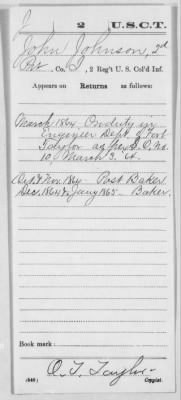 J 2 U.S.C.T.
John Johnson, 2d
Pvt, Co. I, 2 Reg't U. S. Col'd Inf.
Appears on Returns as follows:
March 1864, On duty in
Engineer Dept. of Fort
Taylor as per S.O. No.
10, March 3. 64.
Oct & Nov. 1864 - Post Baker
Dec. 1864 & Jany 1865 - Baker.
Book mark:
O. T. Taylor
(546) Copyist.